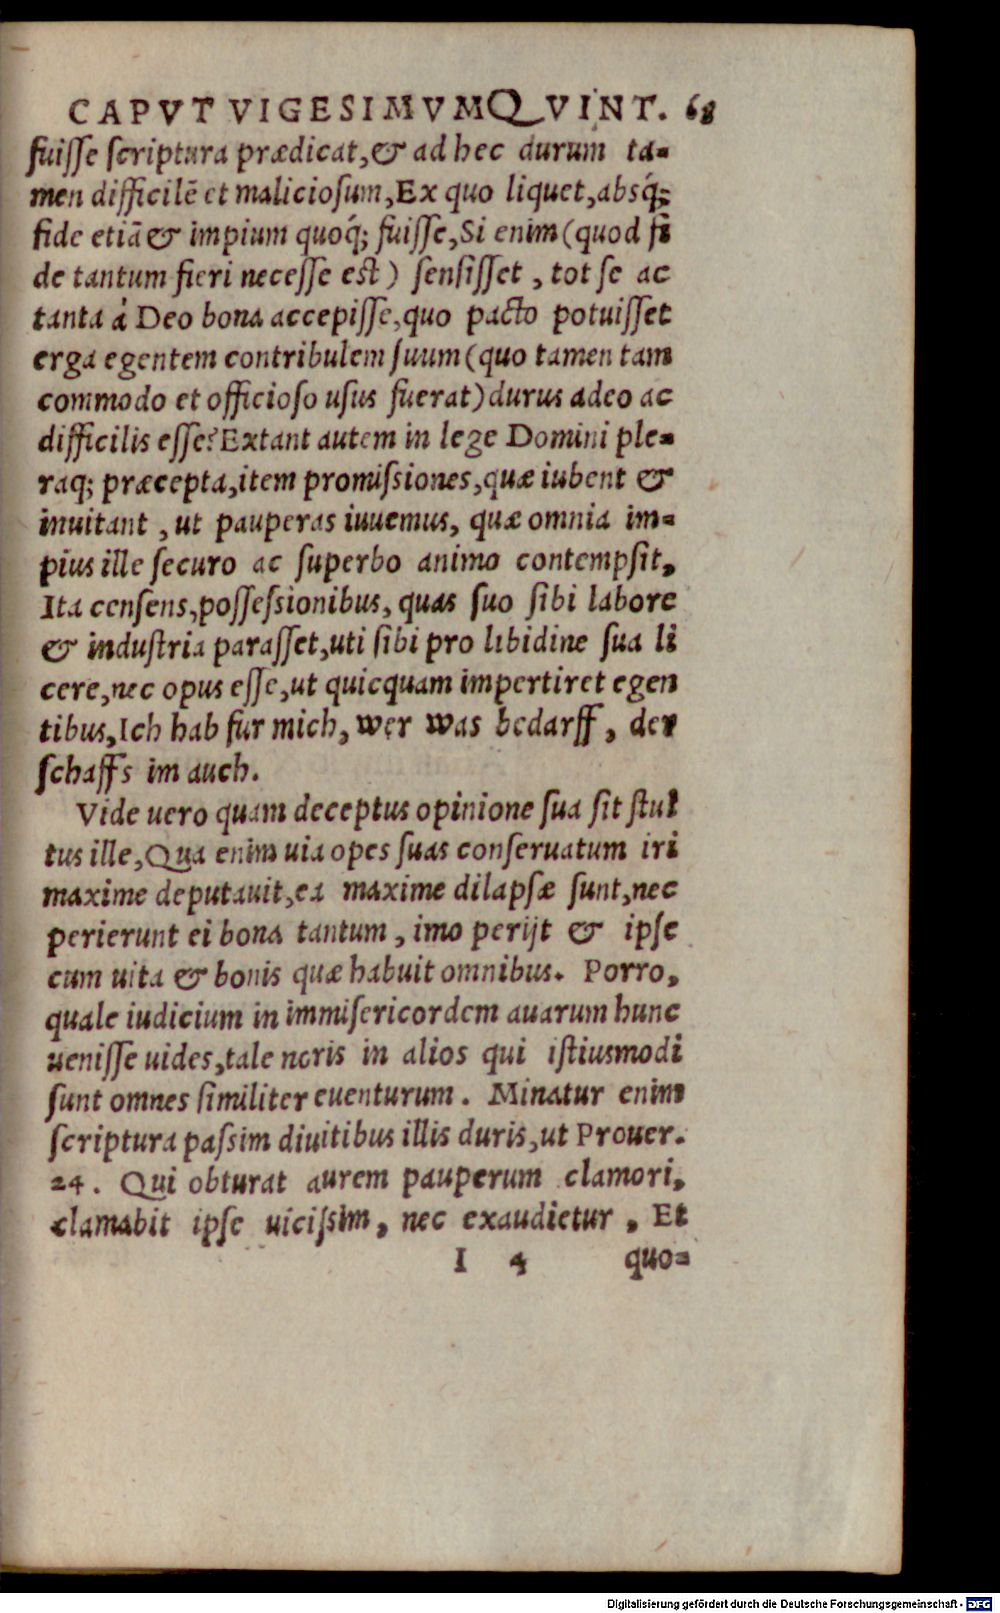 CAPVT VIGESIMVMQVINT. 68
fuisse scriptura prædicat,& ad hec durum ta-
men difficilē et maliciosum,Ex quo liquet,absq́;
fide etiā & impium quoq́; fuisse,Si enim(quod fi
de tantum fieri necesse est) sensisset , tot se ac
tanta á Deo bona accepisse,quo pacto potuisset
erga egentem contribulem suum(quo tamen tam
commodo et officioso usus fuerat)durus adeo ac
difficilis esse?Extant autem in lege Domini ple-
raq; præcepta,item promissiones,quæ iubent &
inuitant , ut pauperas iuuemus, quæ omnia im-
pius ille securo ac superbo animo contempsit,
Ita censens,possessionibus, quas suo sibi labore
& industria parasset,uti sibi pro libidine sua li
cere,nec opus esse,ut quicquam impertiret egen
tibus,Ich hab fur mich, wer was bedarff, der
schaffs im auch.
Vide uero quam deceptus opinione sua sit stul
tus ille,Qua enim uia opes suas conseruatum iri
maxime deputauit,ea maxime dilapsæ sunt,nec
perierunt ei bona tantum , imo perijt & ipse
cum uita & bonis quæ habuit omnibus. Porro,
quale iudicium in immisericordem auarum hunc
uenisse uides,tale noris in alios qui istiusmodi
sunt omnes similiter euenturum. Minatur enim
scriptura passim diuitibus illis duris,ut Prouer.
24. Qui obturat aurem pauperum clamori,
clamabit ipse uicissim, nec exaudietur , Et
I 4 quo-
Digitalisierung gefördert durch die Deutsche Forschungsgemeinschaft - DFG